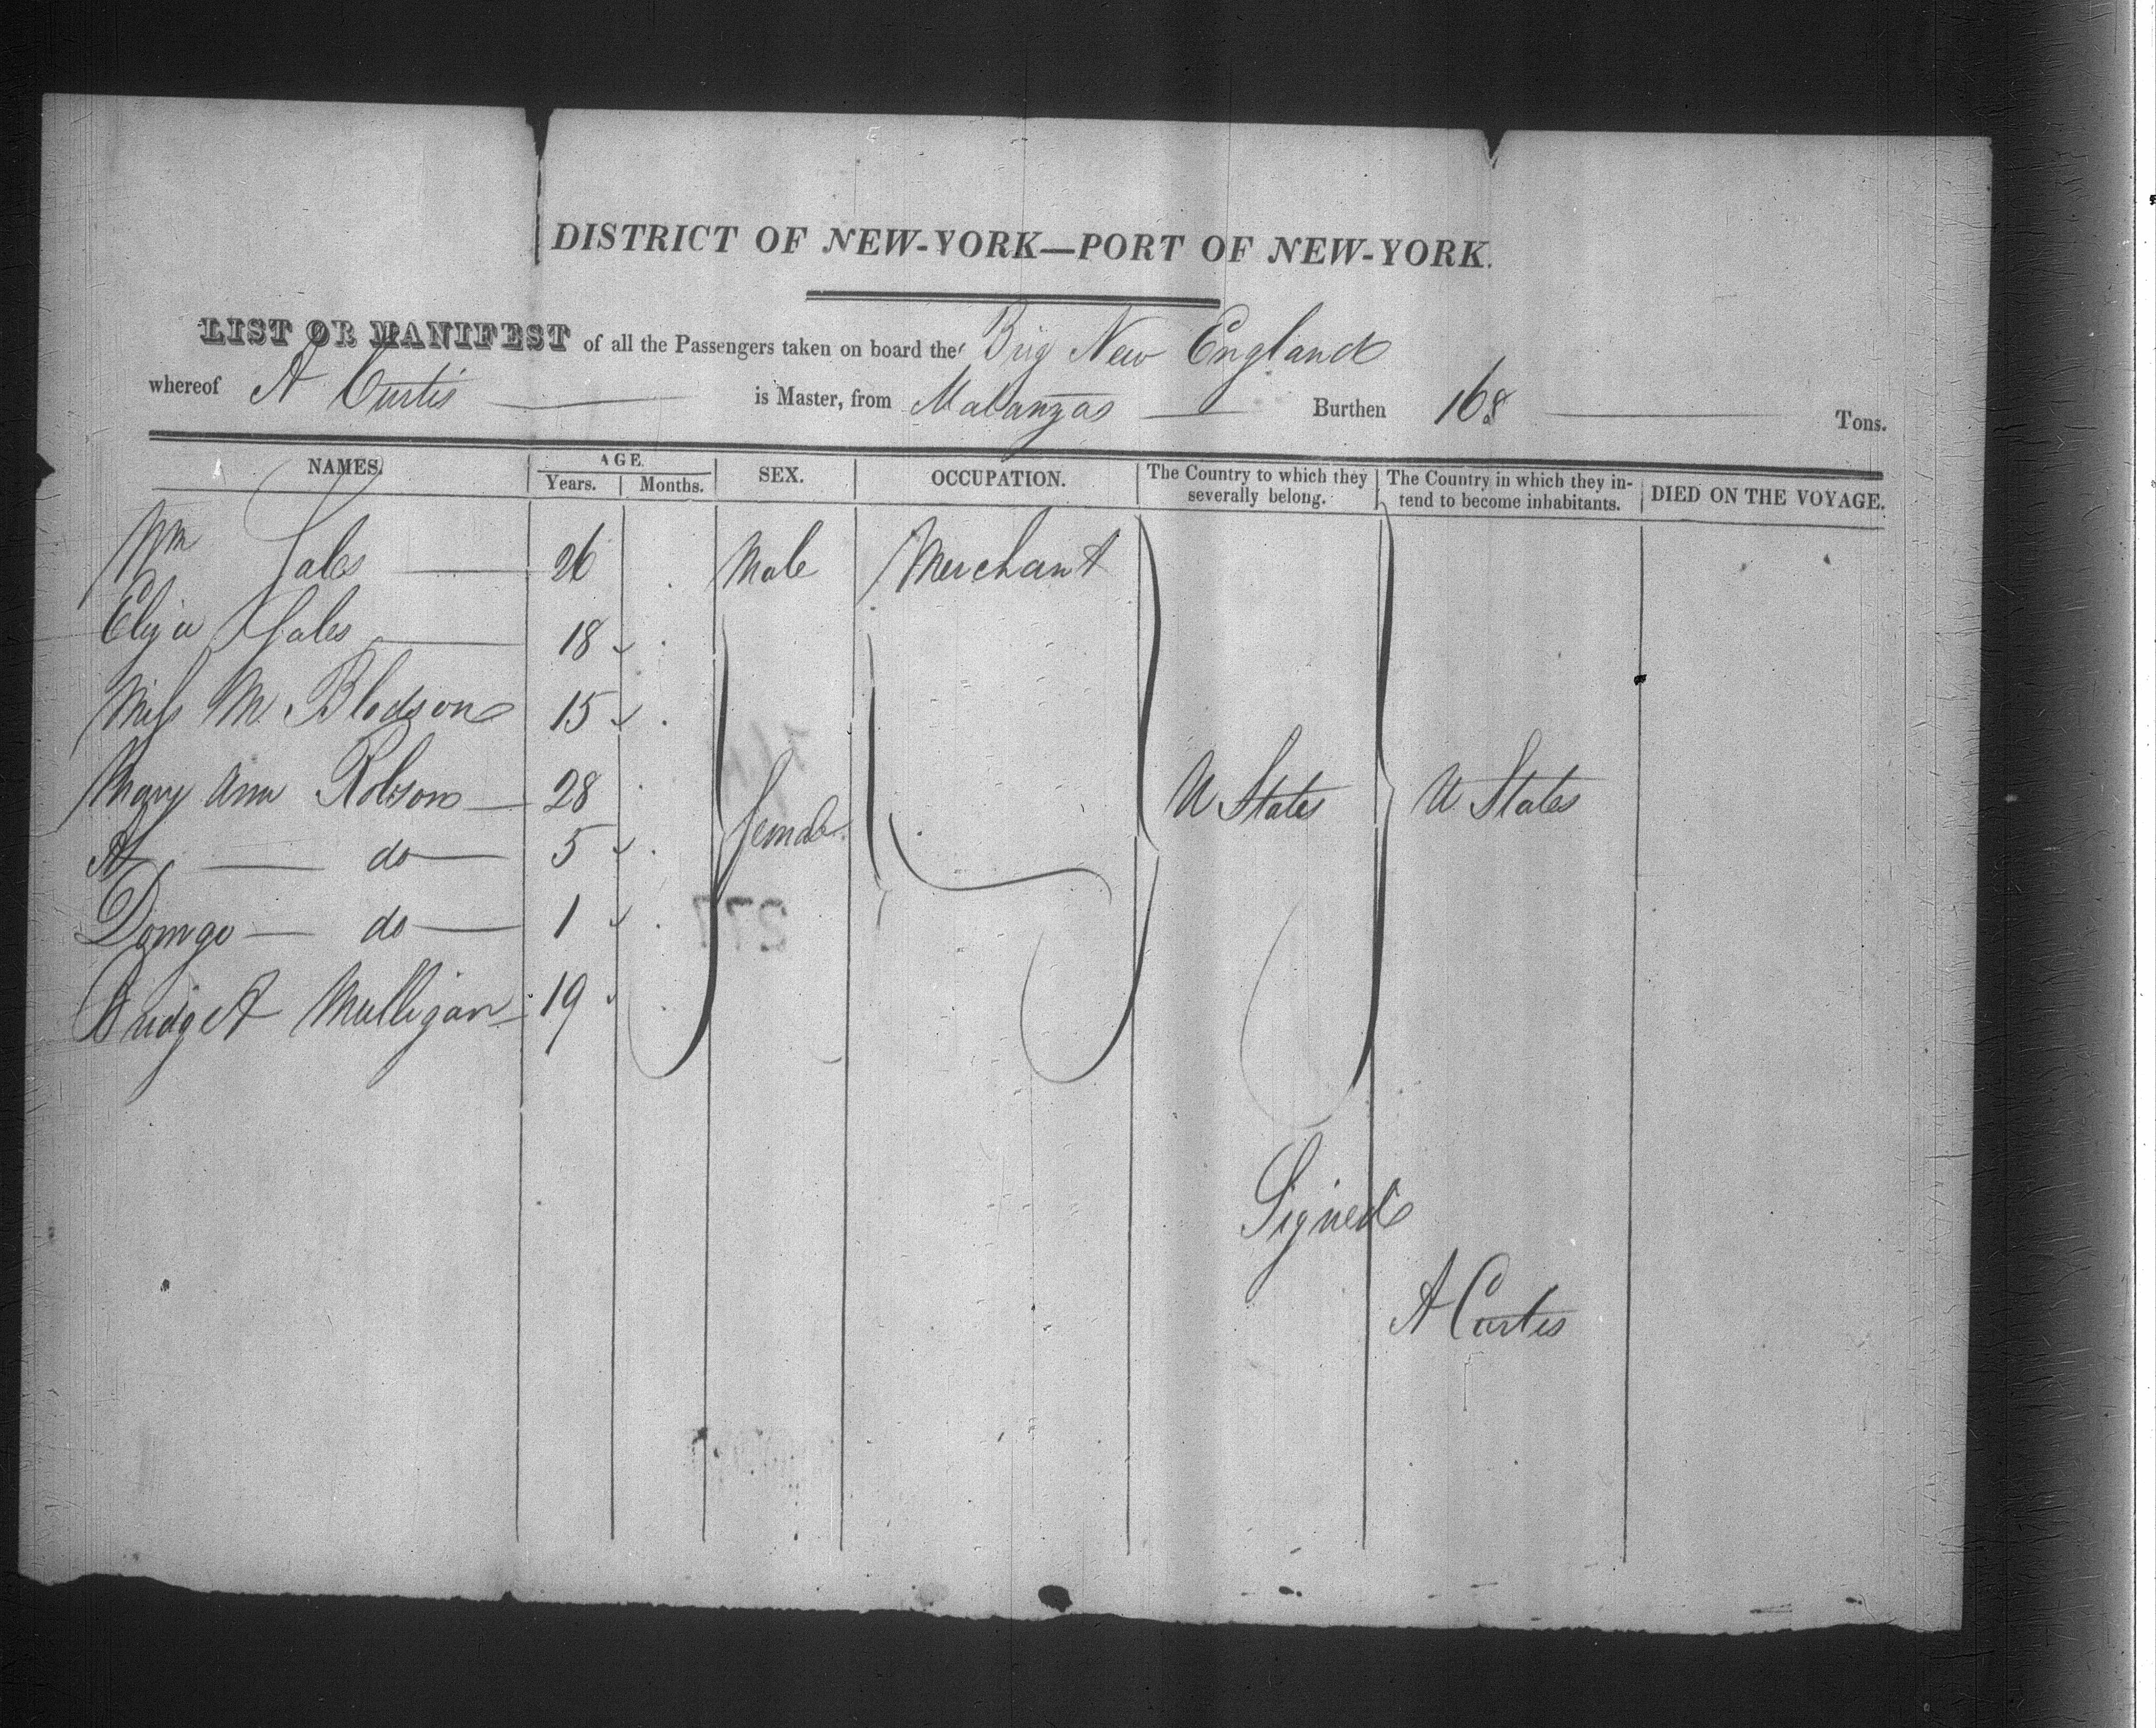 DISTRICT OF NEW-YORK—PORT OF NEW-YORK.
LIST OR MANIFEST of all the Passengers taken on board the Brig New England
whereof A Curtis is Master, from Matanzas Burthen 168 Tons.
NAMES. AGE. Years. Months. SEX. OCCUPATION. The Country to which they severally belong. The Country in which they intend to become inhabitants. DIED ON THE VOYAGE.
Wm 26 Male Merchant
Eliza 18
Miss M Bledsone 15
Mary Ann Robson 28 U States U States
do 5 female
do 1
Bridget Mulligan 19
277
Signed
A Curtis